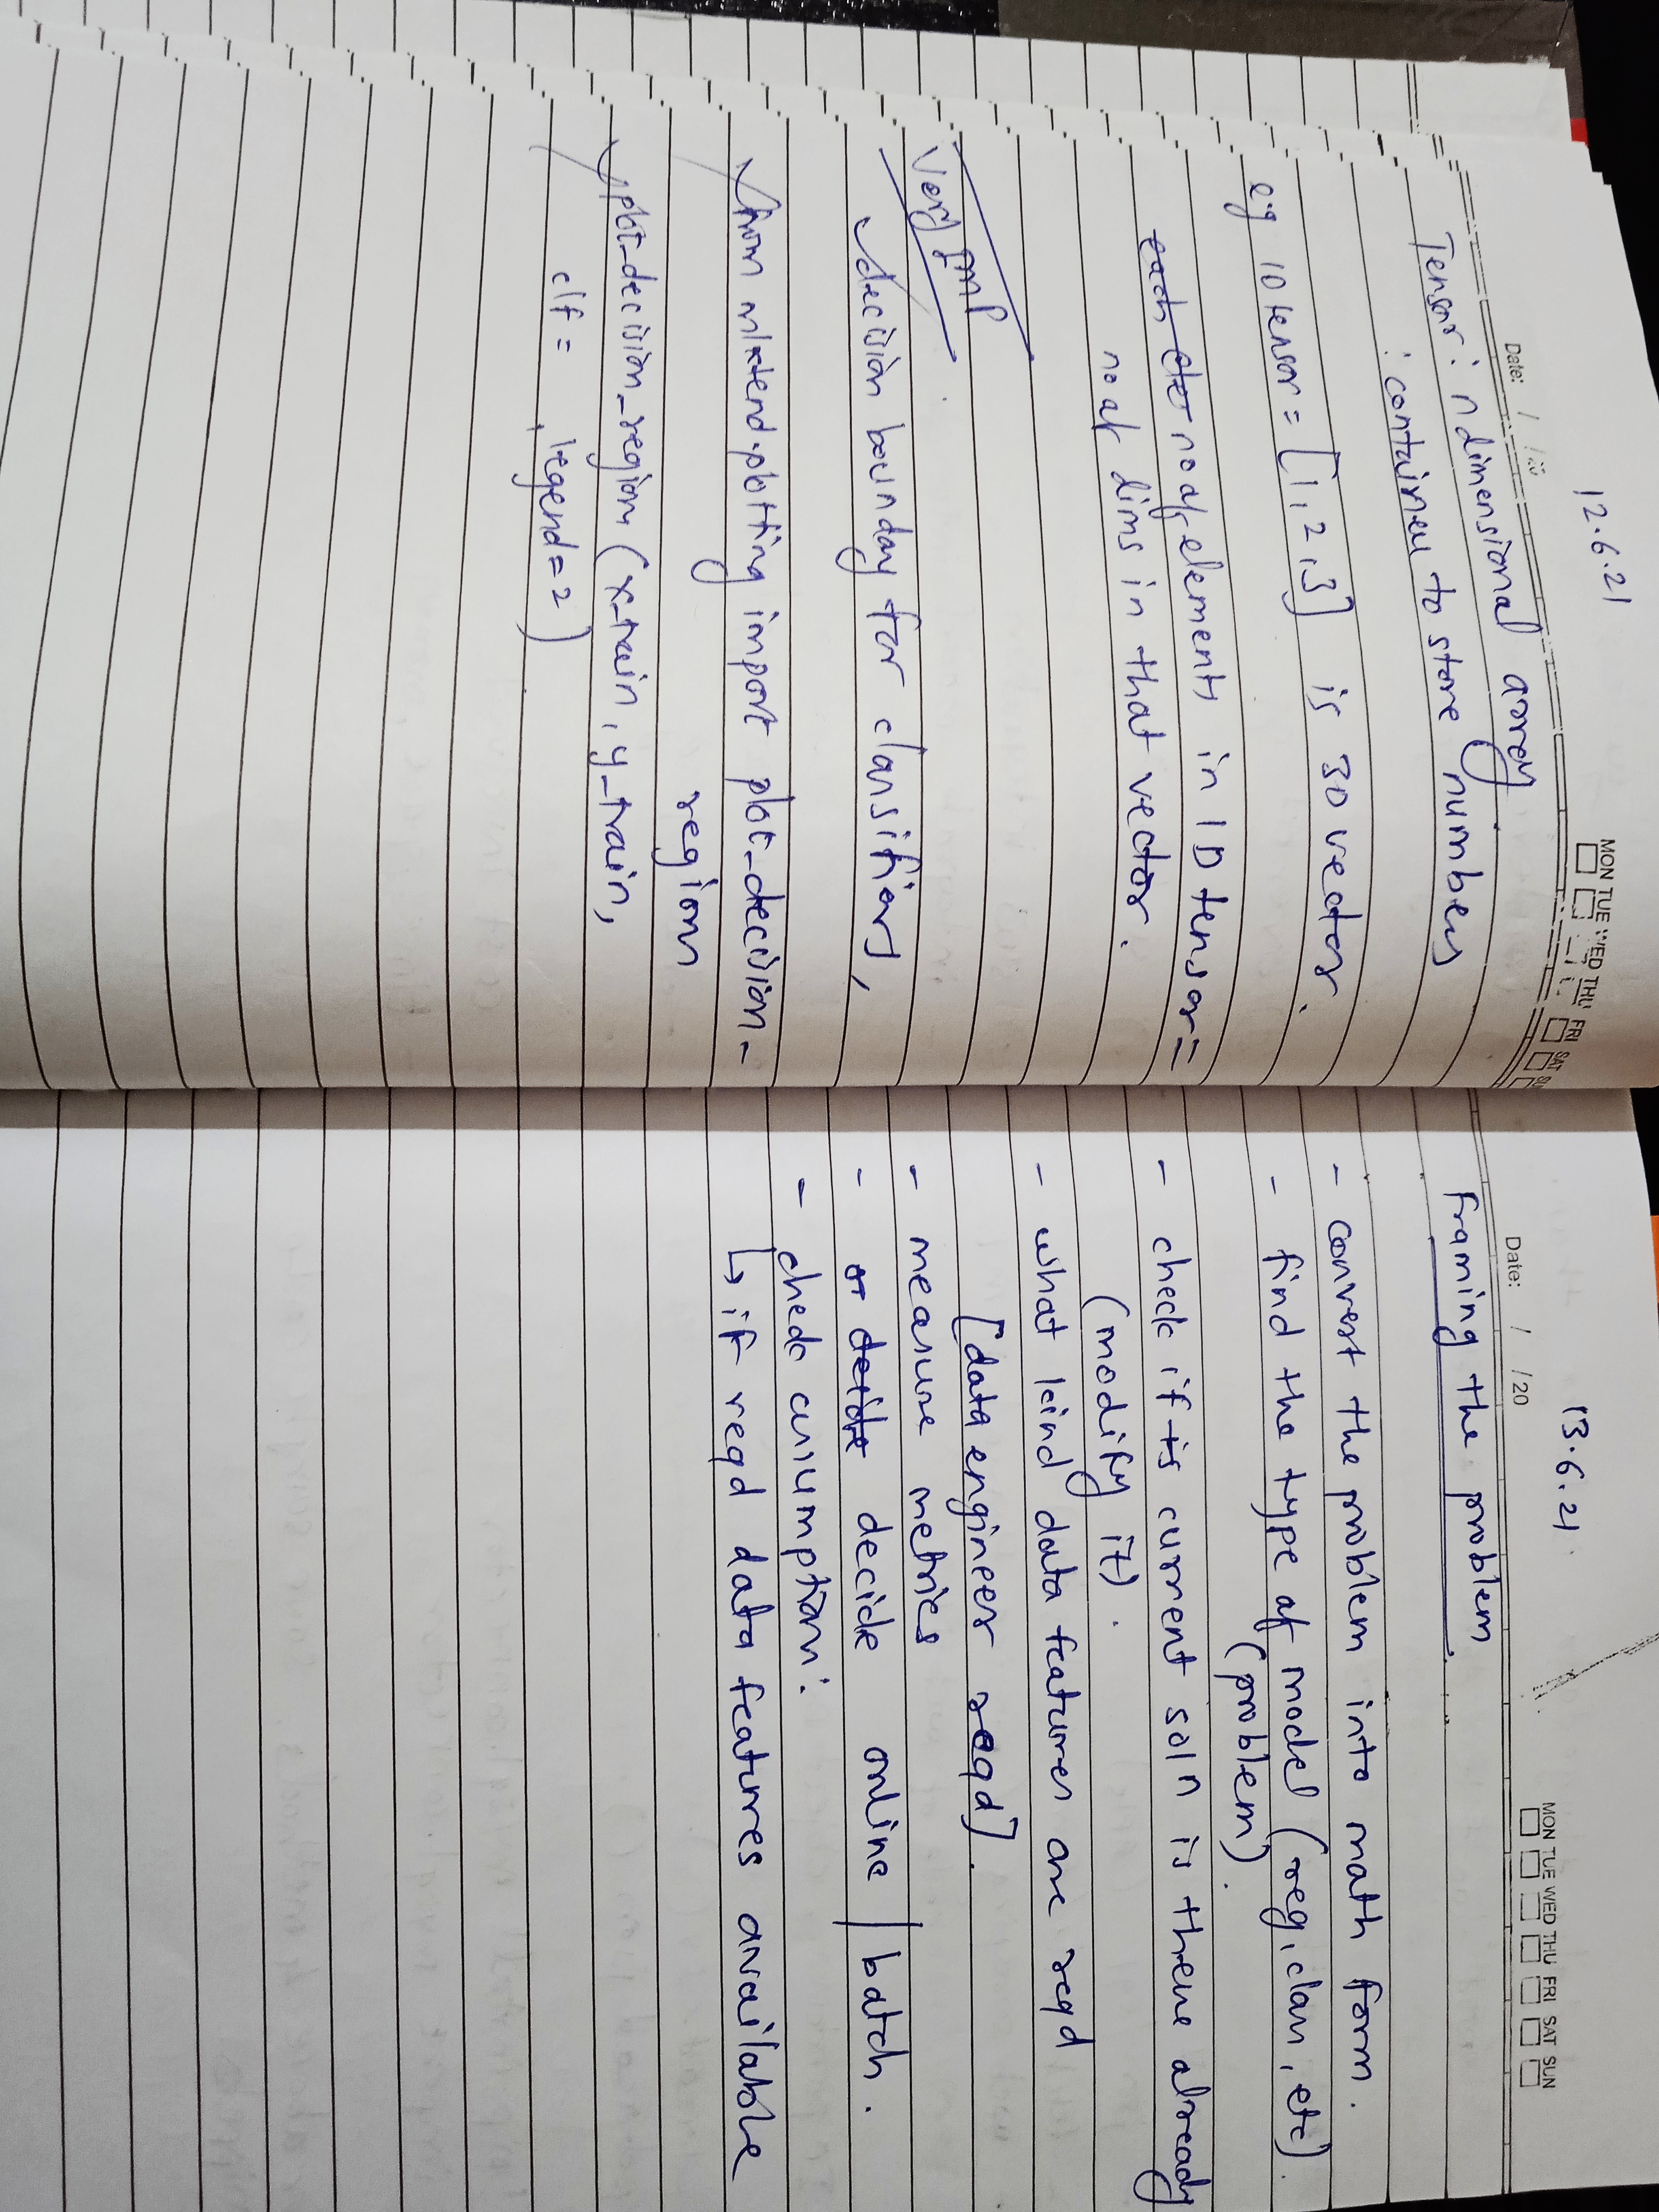 12.6.21
Date: / /20
MON TUE WED THU FRI SAT SUN
Tensor : n dimensional array
: container to store numbers
eg 1D tensor = [1, 2, 3] is 3D vector.
each ele no of elements in 1D tensor =
no of dims in that vector.
Very Imp
✓ decision bounday for classifiers,
✓ from mlxtend.plotting import plot_decision_
region
✓ plot_decision_region (x_train, y_train,
clf = , legend = 2)
13.6.21
Date: / /20
MON TUE WED THU FRI SAT SUN
Framing the problem
- convert the problem into math form.
- find the type of model (reg, class, etc).
(problem).
- check if is current soln is there already
(modify it).
- what kind data features are reqd
[data engineer reqd].
- measure metrics
- decide decide online / batch.
- check assumptions:
↳ if reqd data features available